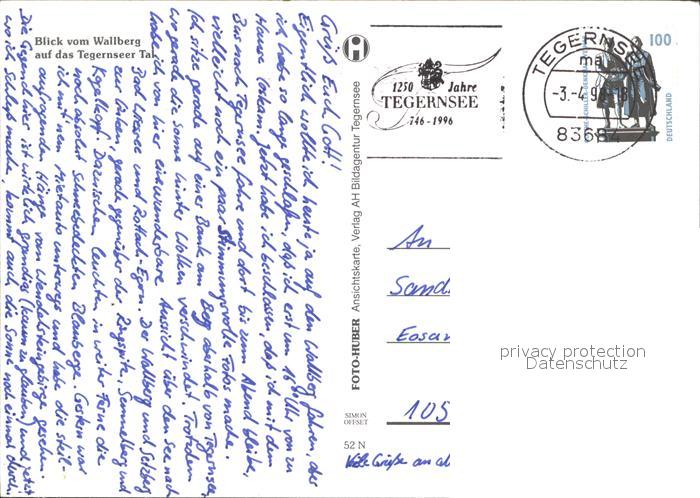 Blick vom Wallberg
auf das Tegernseer Tal
Grüß Euch Gott!
Eigentlich wollte ich heut ja auf den Wallberg fahren, aber
ich habe so lang geschlafen, daß ich erst um 16 Uhr von zu
Hause loskam. Jetzt hab ich beschlossen, daß ich mit dem
Bus nach Tegernsee fahre und dort bis zum Abend bleibe,
vielleicht noch ein paar stimmungsvolle Fotos mache.
Ich sitze grad auf einer Bank am Berg oberhalb von Tegernsee,
wo gerade die Sonne hinter Wolken verschwindet. Trotzdem
habe ich hier eine wunderbare Aussicht über den See nach
Bad Wiessee und Rottach-Egern. Der Wallberg und Setzberg
zur Linken, gerade gegenüber der Ringspitz, Sonnenberg und
Kogelkopf. Dazwischen leuchten in weiter Ferne die
noch absolut schneebedeckten Blauberge. Gestern war
ich mit nem Mietauto unterwegs und hab die steil-
aufragenden Hänge vom Wendelsteingebirge gesehen.
Die Gegend hier ist wirklich grandios (kaum zu glauben) und jetzt
wo ich Schluß mache, kommt auch die Sonne noch einmal durch.
FOTO-HUBER Ansichtskarte, Verlag AH Bildagentur Tegernsee
1250 Jahre
TEGERNSEE
746-1996
TEGERNSEE
ma
-3.-4.9
83684
100
DEUTSCHLAND
An
Sand
Eosan
105
privacy protection
Datenschutz
SIMON
OFFSET
52 N
Viele Grüße an al